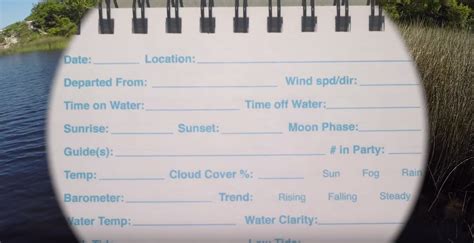 Date: Location:
Departed From: Wind spd/dir:
Time on Water: Time off Water:
Sunrise: Sunset: Moon Phase:
Guide(s): # in Party:
Temp: Cloud Cover %: Sun Fog Rain
Barometer: Trend: Rising Falling Steady
Water Temp: Water Clarity:
Tide: Low Tide: